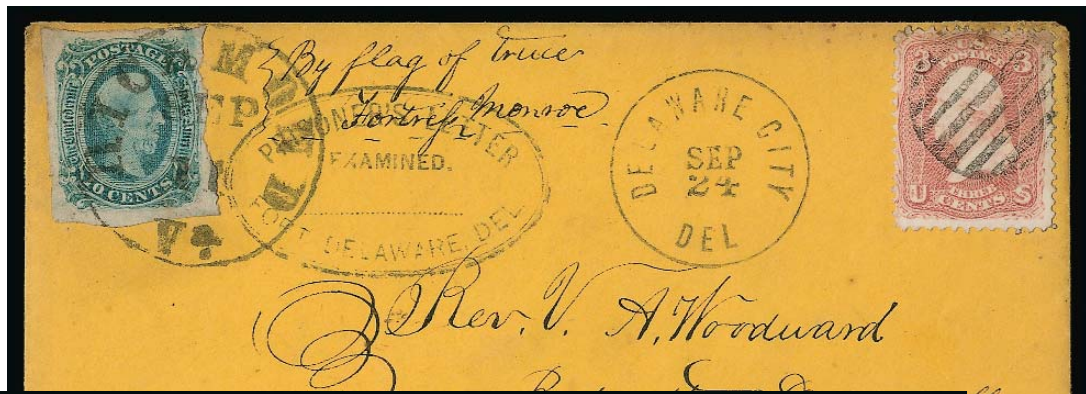 POSTAGE
CENTS
RICHMOND
SEP
VA
By flag of truce
Fortress Monroe
PRISONER'S LETTER
EXAMINED.
FORT DELAWARE, DEL
DELAWARE CITY
SEP
24
DEL
U.S.
POSTAGE
3 3
U THREE S
CENTS
Rev. V. A. Woodward